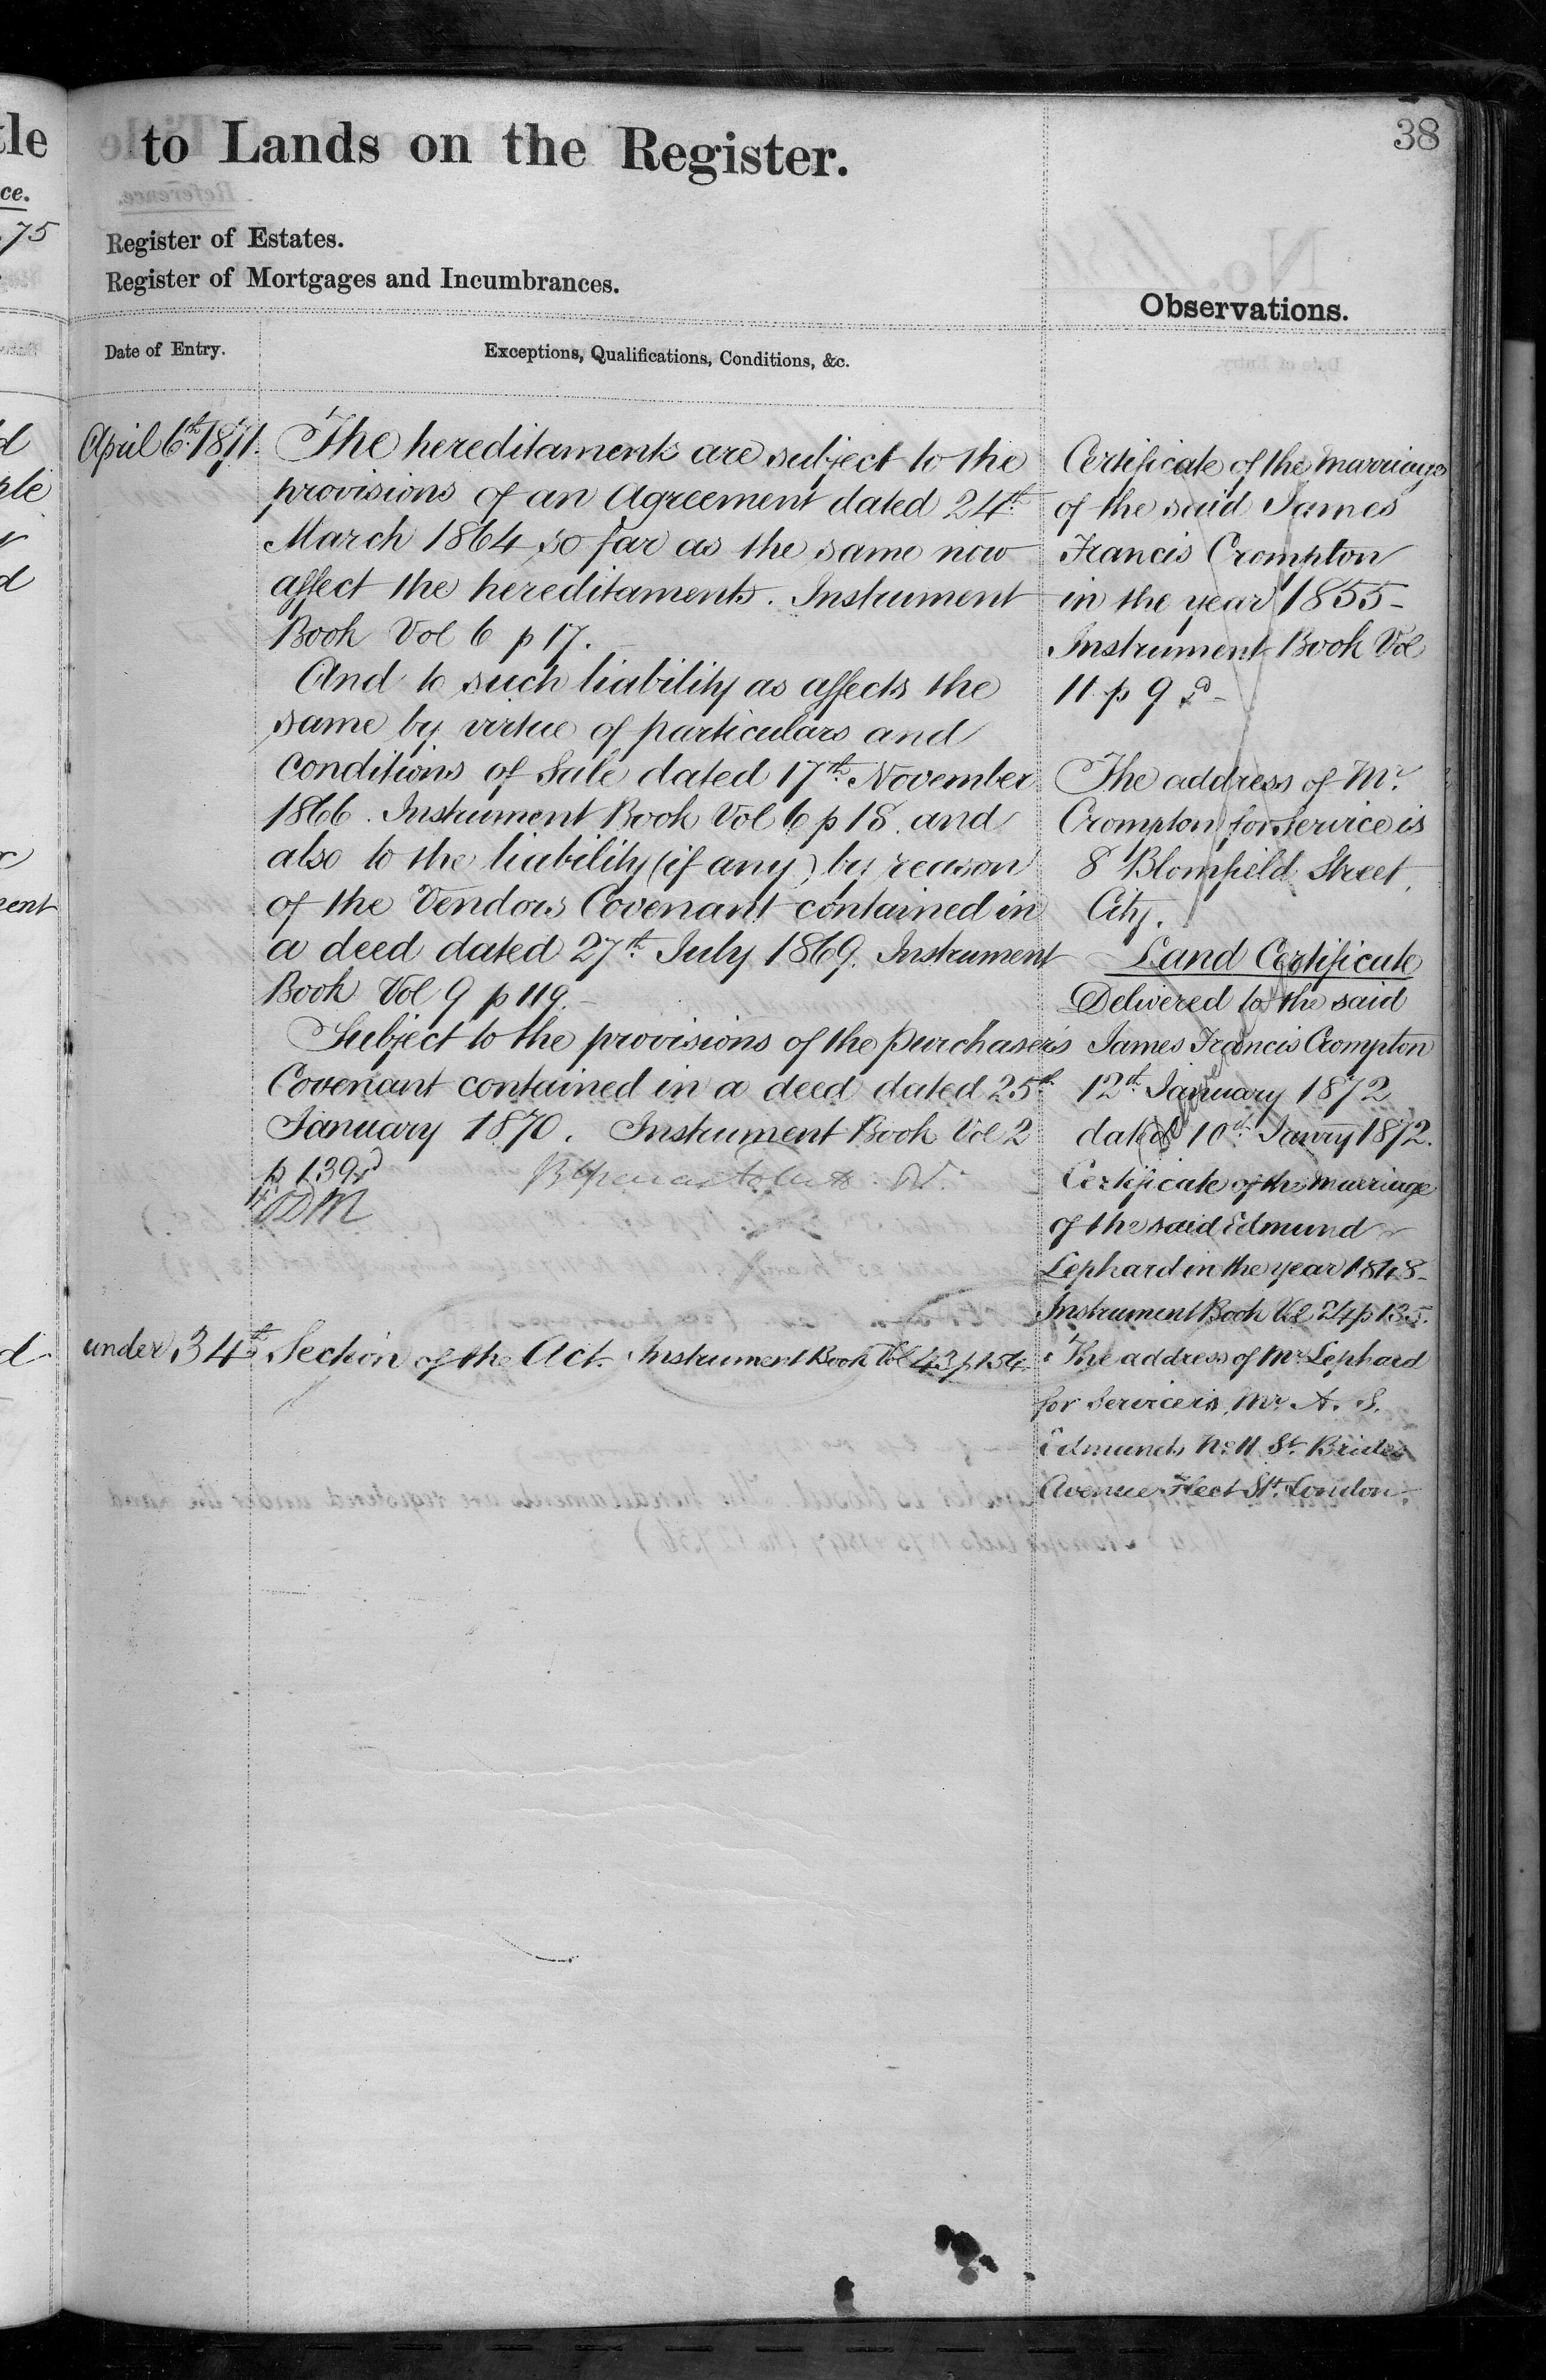 38
to Lands on the Register.
Register of Estates.
Register of Mortgages and Incumbrances.
Date of Entry.
Exceptions, Qualifications, Conditions, &c.
April 6th 1871.
The hereditaments are subject to the
provisions of an Agreement dated 24th
March 1864 so far as the same now
affect the hereditaments. Instrument
Book Vol 6 p 17.
And to such liability as affects the
same by virtue of particulars and
conditions of Sale dated 17th November
1866. Instrument Book Vol 6 p 18. and
also to the liability (if any) by reason
of the Vendors Covenant contained in
a deed dated 27th July 1869. Instrument
Book Vol 9 p 119.
Subject to the provisions of the purchaser's
Covenant contained in a deed dated 25th
January 1870. Instrument Book Vol 2
p 139
under 34th Section of the Act. Instrument Book Vol 43 p 154
Observations.
Certificate of the marriage
of the said James
Francis Crompton
in the year 1855-
Instrument Book Vol
11 p 9
The address of Mr.
Crompton for service is
8 Blomfield Street
City.
Land Certificate
Delivered to the said
James Francis Crompton
12th January 1872
dated 10th Janry 1872.
Certificate of the marriage
of the said Edmund
Lephard in the year 1848-
Instrument Book Vol 24 p 135.
The address of Mr Lephard
for Service is, Mr A. S.
Edmunds No 11 St. Brides
Avenue Fleet St. London.
tle
ce.
75
d
ple
d
ent
d